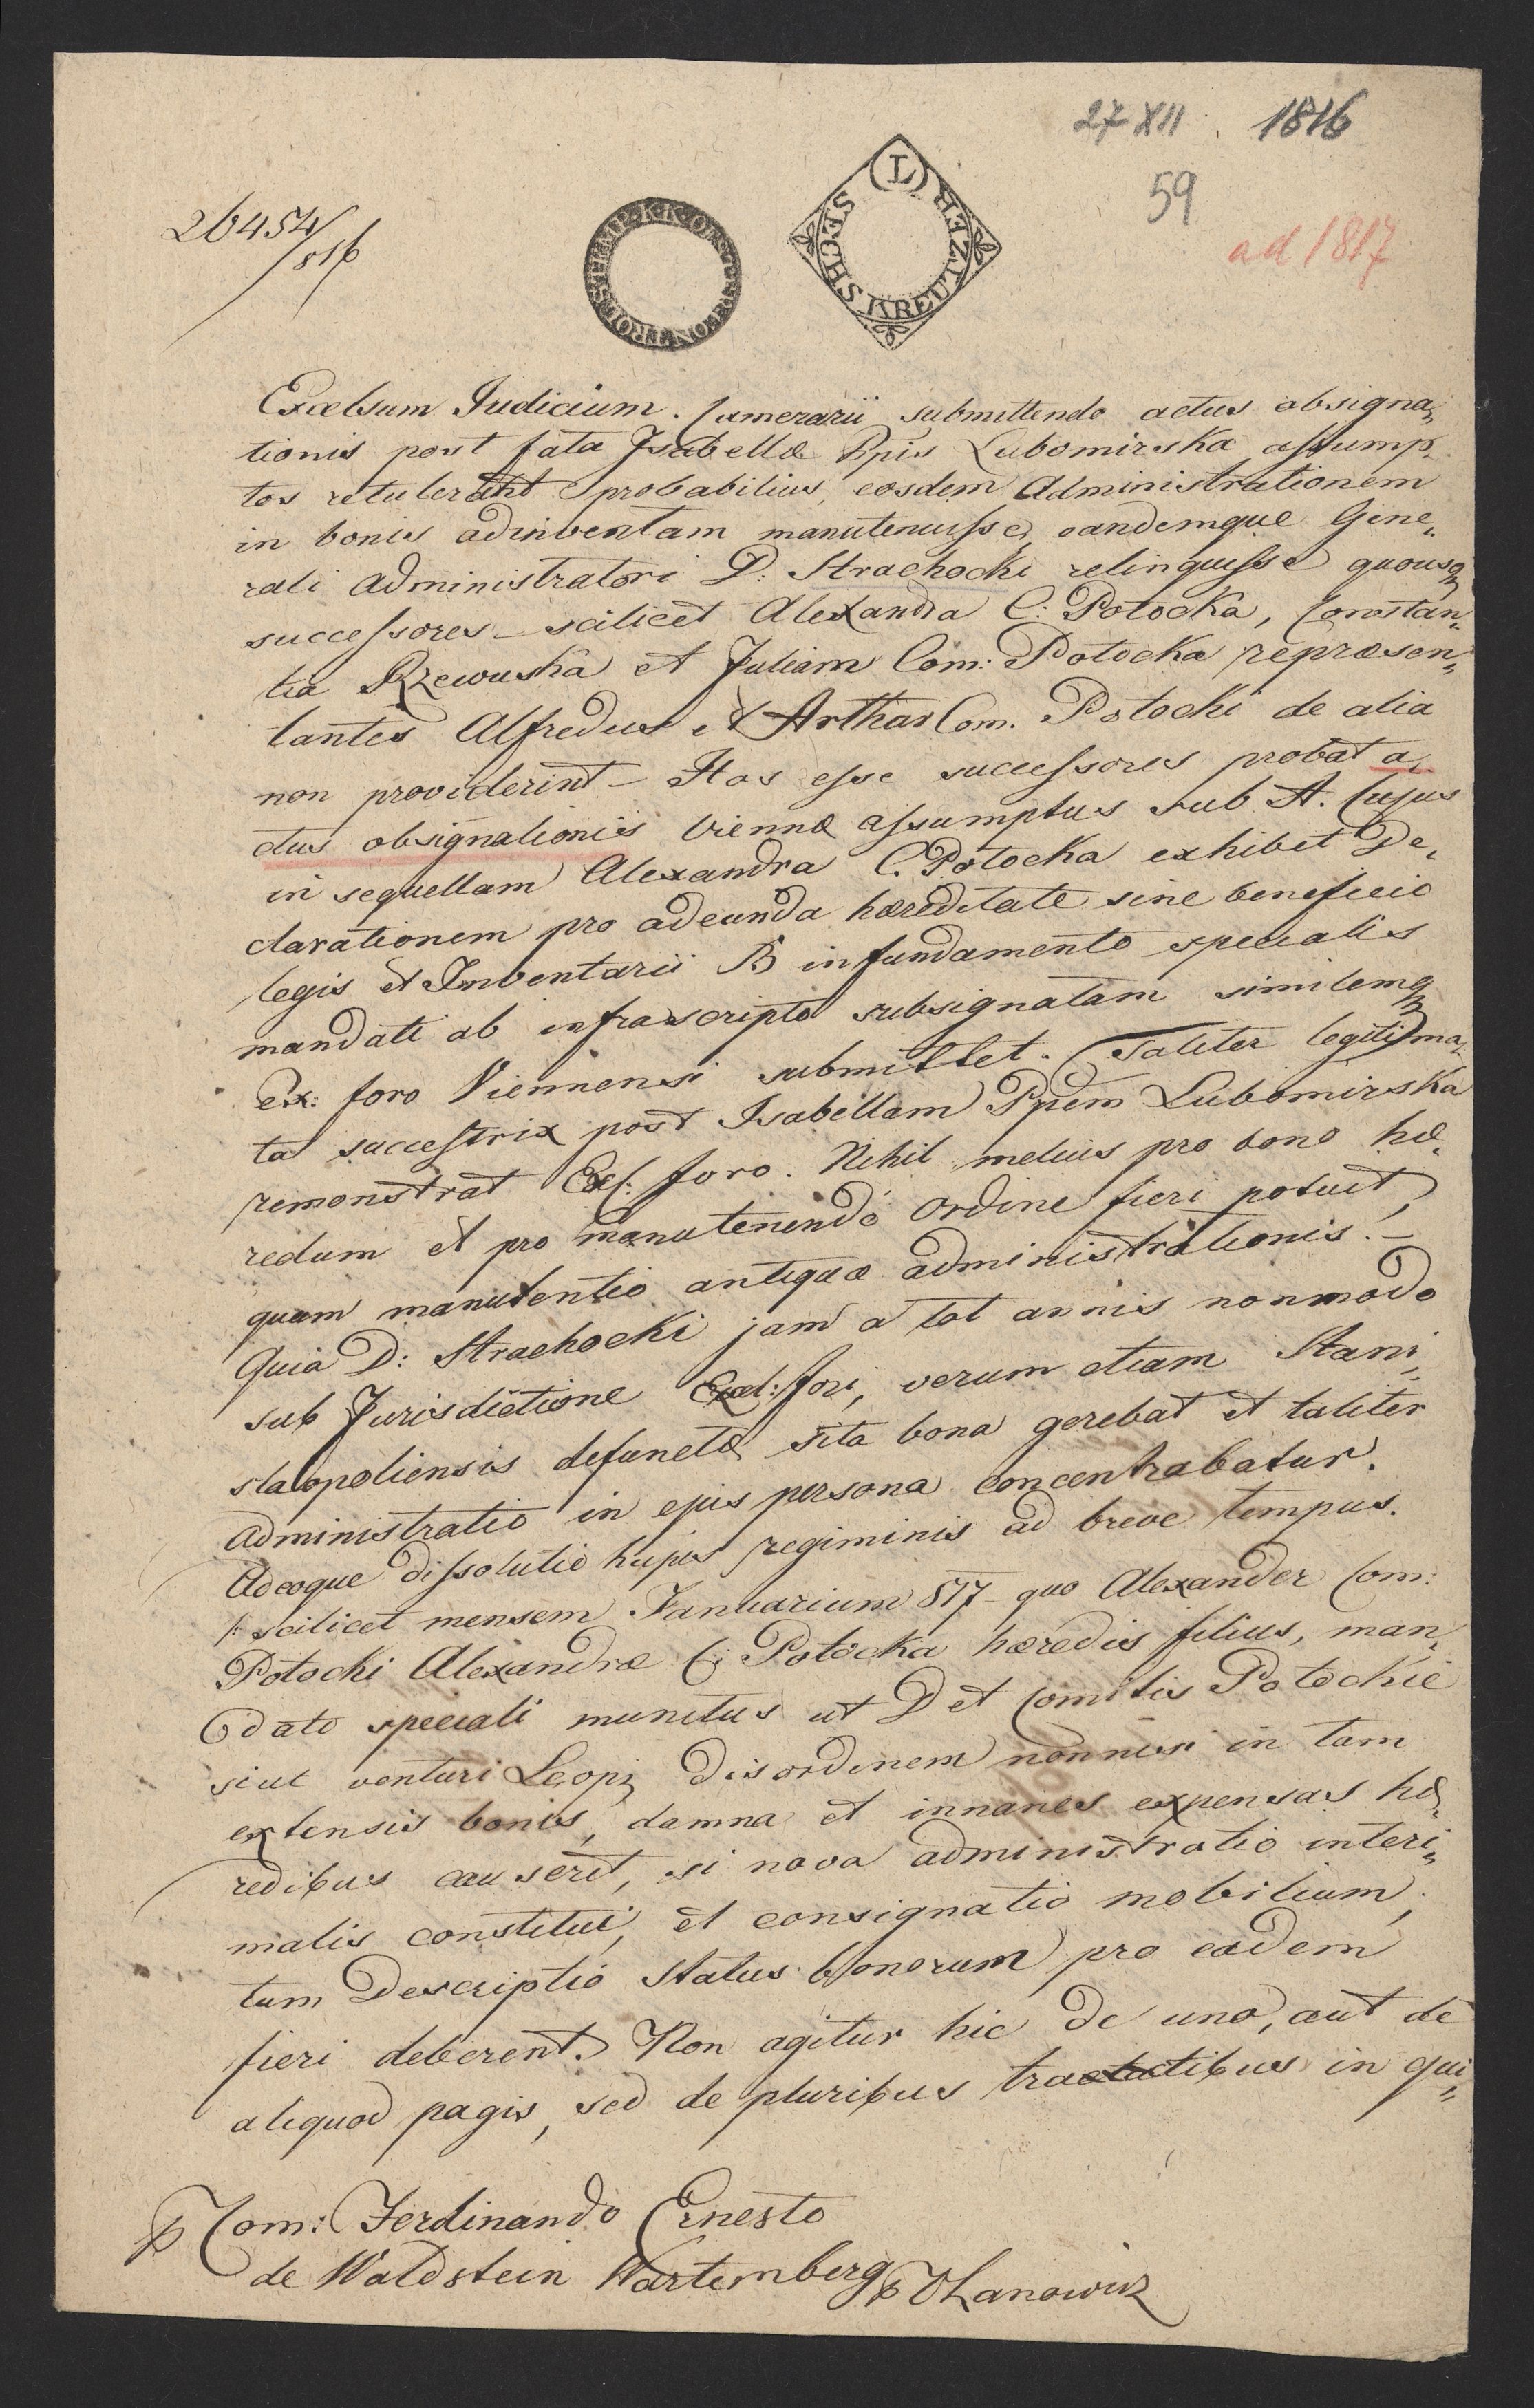 27 XII. 1816
59
ad 1817
26454/816
CONTROL STEMP. K. K. OEST.
(L) SECHS KREUTZER
Excelsum Judicium. Camerarii submittendo actus obsigna„
tionis post fata Isabellæ Ppis Lubomirska assump„
tos retulerunt probabilius, eosdem Administrationem
in bonis adinventam manutenuisse, eandemque Gene„
rali Administratori D: Strachocki relinquisse quousq
successores – scilicet Alexandra C: Potocka, Constan„
tia Rzewuska et Juliam Com: Potocka repræsen„
tantes Alfredus et Arthur Com. Potocki de alia
non providerint – Hos esse successores probat a„
ctus obsignationis Viennæ assumptus sub A. Cujus
in sequellam Alexandra C. Potocka exhibet De„
clarationem pro adeunda hæreditate sine beneficio
legis et Inventarii B in fundamento specialis
mandati ab infrascripto subsignatam similemq
Ex: foro Viennensi submittet. Taliter legitima„
ta successtrix post Isabellam Ppem Lubomirska
remonstrat Exc: foro. Nihil melius pro bono hæ„
redum et pro manutenendo ordine fieri potuit,
quam manutentio antiquæ administrationis. –
Quia D: Strachocki jam a tot annis nonmodo
sub Jurisdictione Excel: fori, verum etiam Stani„
slaopoliensis defunctæ sita bona gerebat et taliter
administratio in ejus persona concentrabatur.
Adeoque dissolutio hujus regiminis ad breve tempus.
/: scilicet mensem Januarium 817 – quo Alexander Com:
Potocki Alexandræ C: Potocka hæredis filius, man„
dato speciali munitus ut D et Comitis Potockie
siut venturi Leopz disordinem nonnisi in tam
extensis bonis, damna et innanes expensas hæ„
redibus causeret, si nova administratio interi„
malis constitui, et consignatio mobilium,
tum Descriptio Status bonorum pro eadem
fieri deberent. Non agitur hic de uno, aut de
aliquod pagis, sed de pluribus tractatibus in qui„
p Com: Ferdinando Ernesto
de Waldstein Wartemberg p Olanowicz